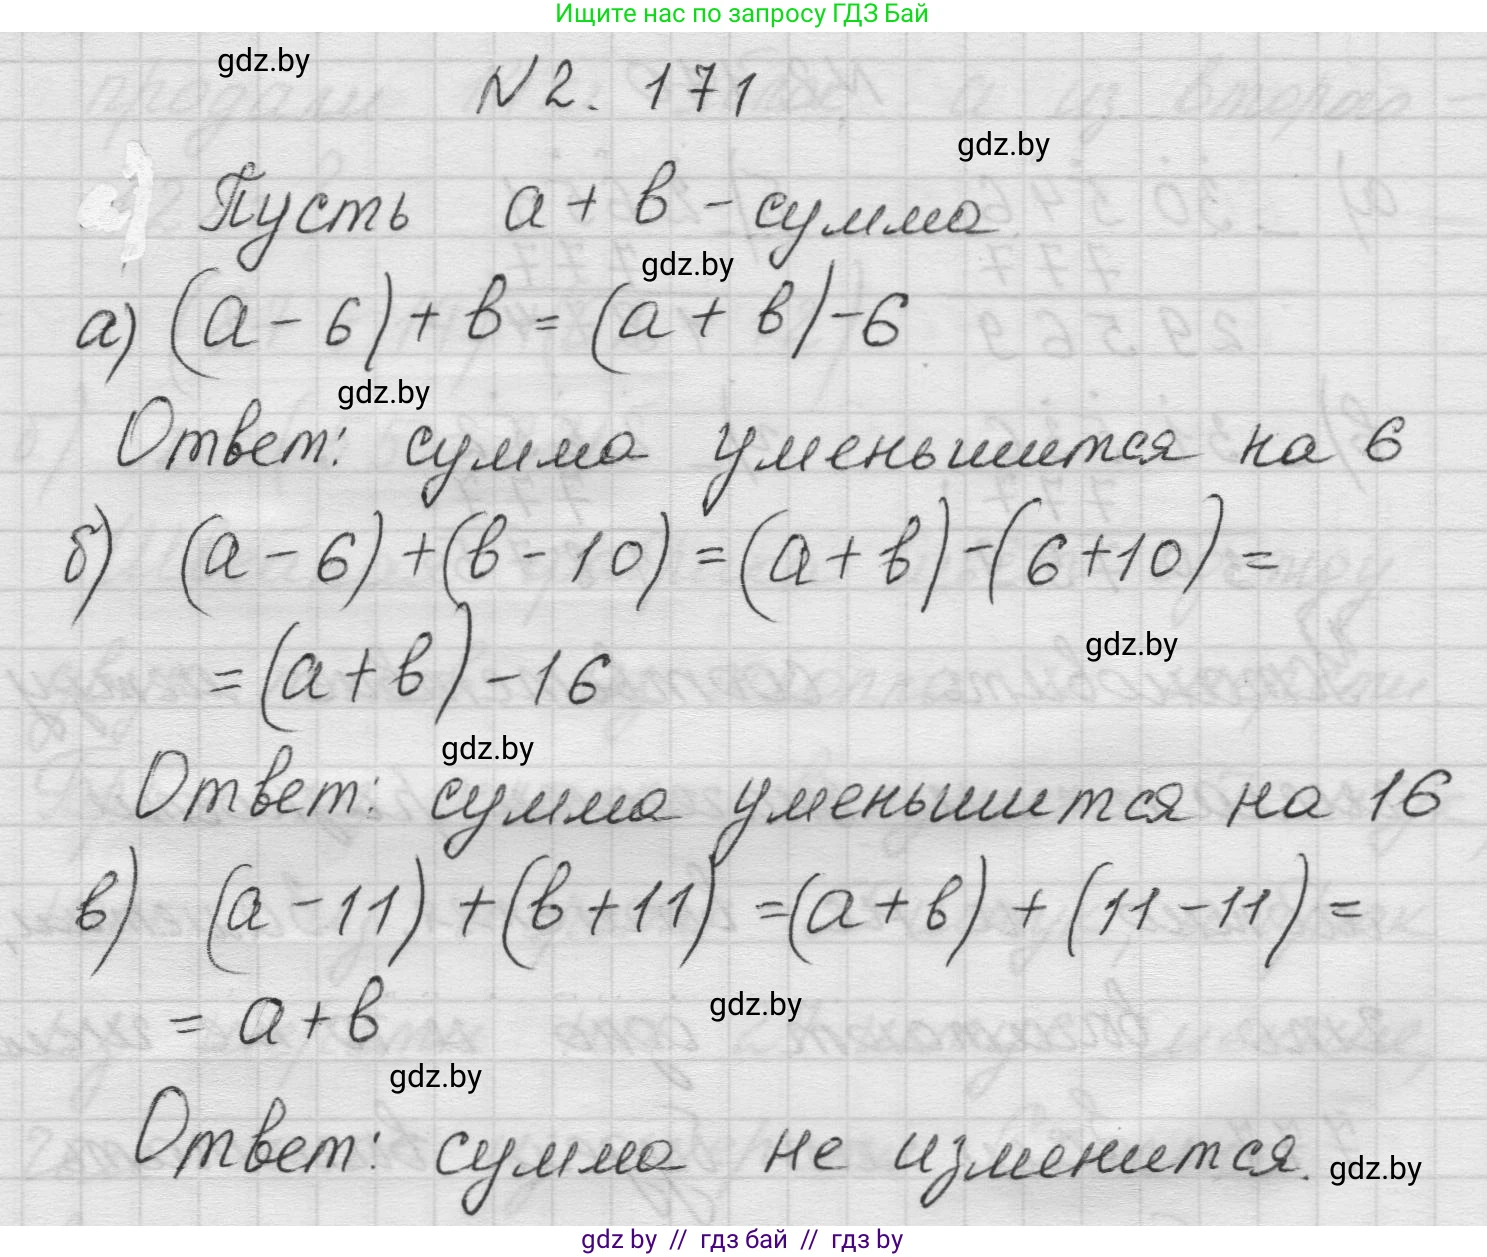 Ищите нас по запросу ГДЗ Бай
gdz.by
№2. 171
gdz.by
Пусть а + в - сумма
gdz.by
а) (а - 6) + в = (а + в) - 6
gdz.by
Ответ: сумма уменьшится на 6
б) (а - 6) + (в - 10) = (а + в) - (6 + 10) =
gdz.by
= (а + в) - 16
gdz.by
Ответ: сумма уменьшится на 16
в) (а - 11) + (в + 11) = (а + в) + (11 - 11) =
gdz.by
= а + в
gdz.by
Ответ: сумма не изменится.
gdz.by
gdz by // гдз бай // гдз by